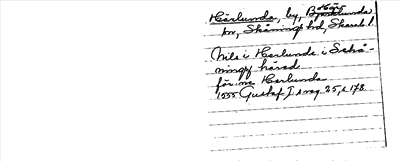 Härlunda, by, Bjärklunda
sn, Skånings hd, Skarab. l.
Nils i Harlunda i Schå-
nings härad
för me Harlunda
1555 Gustaf I:s reg. 25, s. 178.